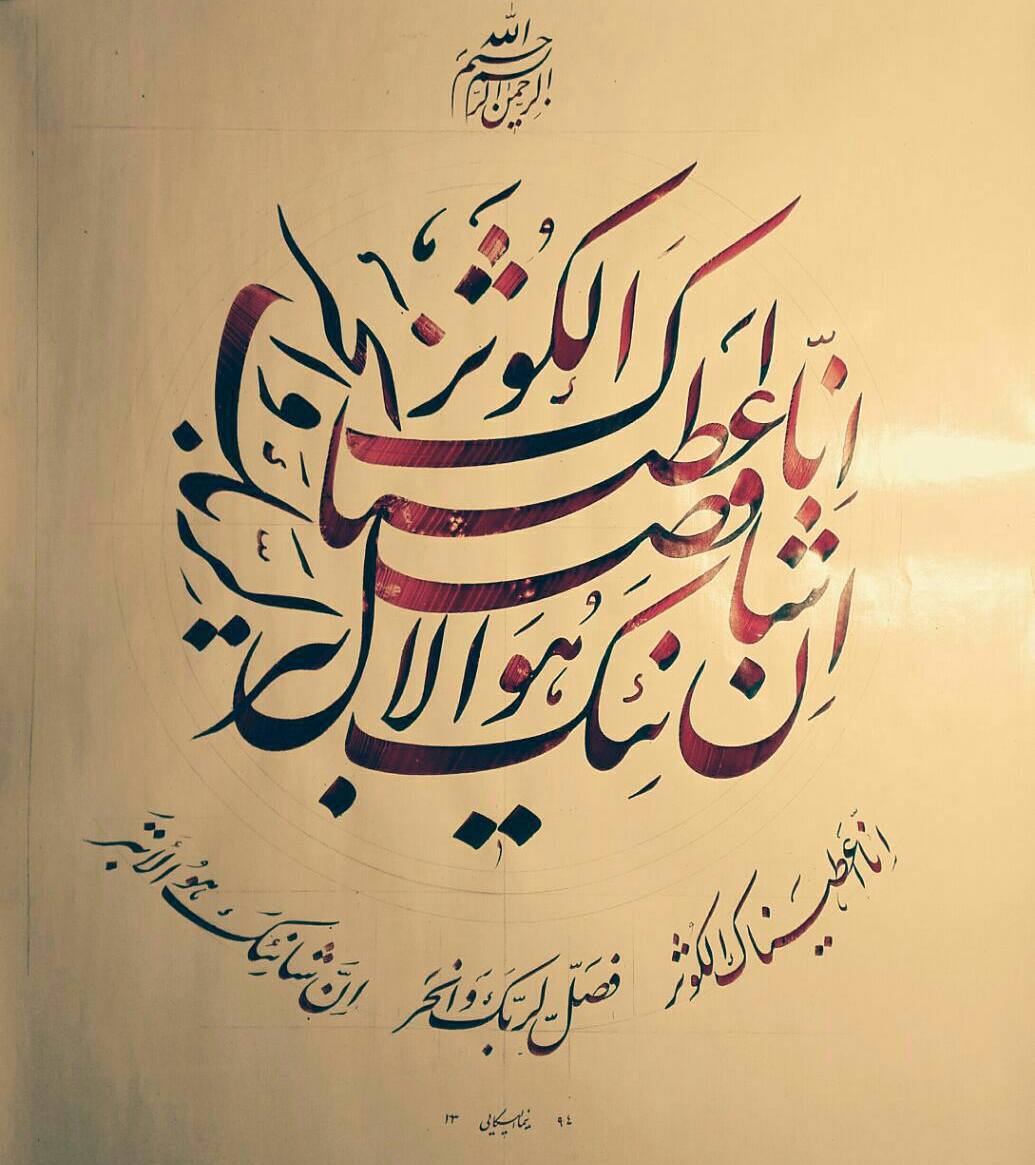 بسم الله الرحمن الرحیم
انّا اعطیناک الکوثر
فصل لربک وانحر
ان شانئک هو الابتر
انّا أعطیناک الکوثر
فصَلّ لربّک وَانحَر
انَّ شانئکَ هوُ الأبتر
۱۳ نیما ۹۴